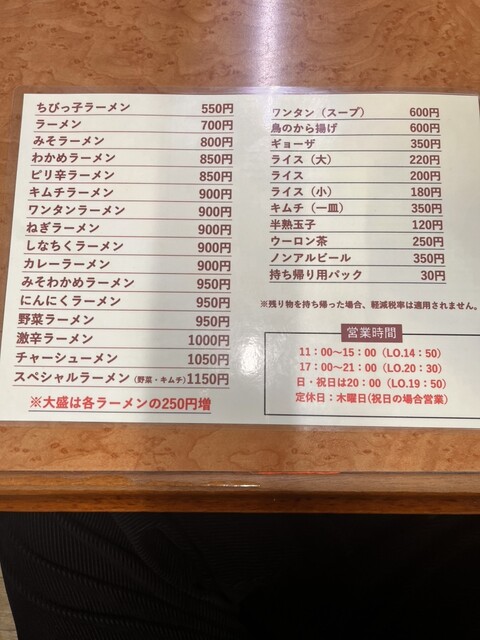 ちびっ子ラーメン 550円
ラーメン 700円
みそラーメン 800円
わかめラーメン 850円
ピリ辛ラーメン 850円
キムチラーメン 900円
ワンタンラーメン 900円
ねぎラーメン 900円
しなちくラーメン 900円
カレーラーメン 900円
みそわかめラーメン 950円
にんにくラーメン 950円
野菜ラーメン 950円
激辛ラーメン 1000円
チャーシューメン 1050円
スペシャルラーメン(野菜・キムチ)1150円
※大盛は各ラーメンの250円増
ワンタン（スープ） 600円
鳥のから揚げ 600円
ギョーザ 350円
ライス（大） 220円
ライス 200円
ライス（小） 180円
キムチ（一皿） 350円
半熟玉子 120円
ウーロン茶 250円
ノンアルビール 350円
持ち帰り用パック 30円
※残り物を持ち帰った場合、軽減税率は適用されません。
営業時間
11：00～15：00（LO.14：50）
17：00～21：00（LO.20：30）
日・祝日は20：00（LO.19：50）
定休日：木曜日(祝日の場合営業）